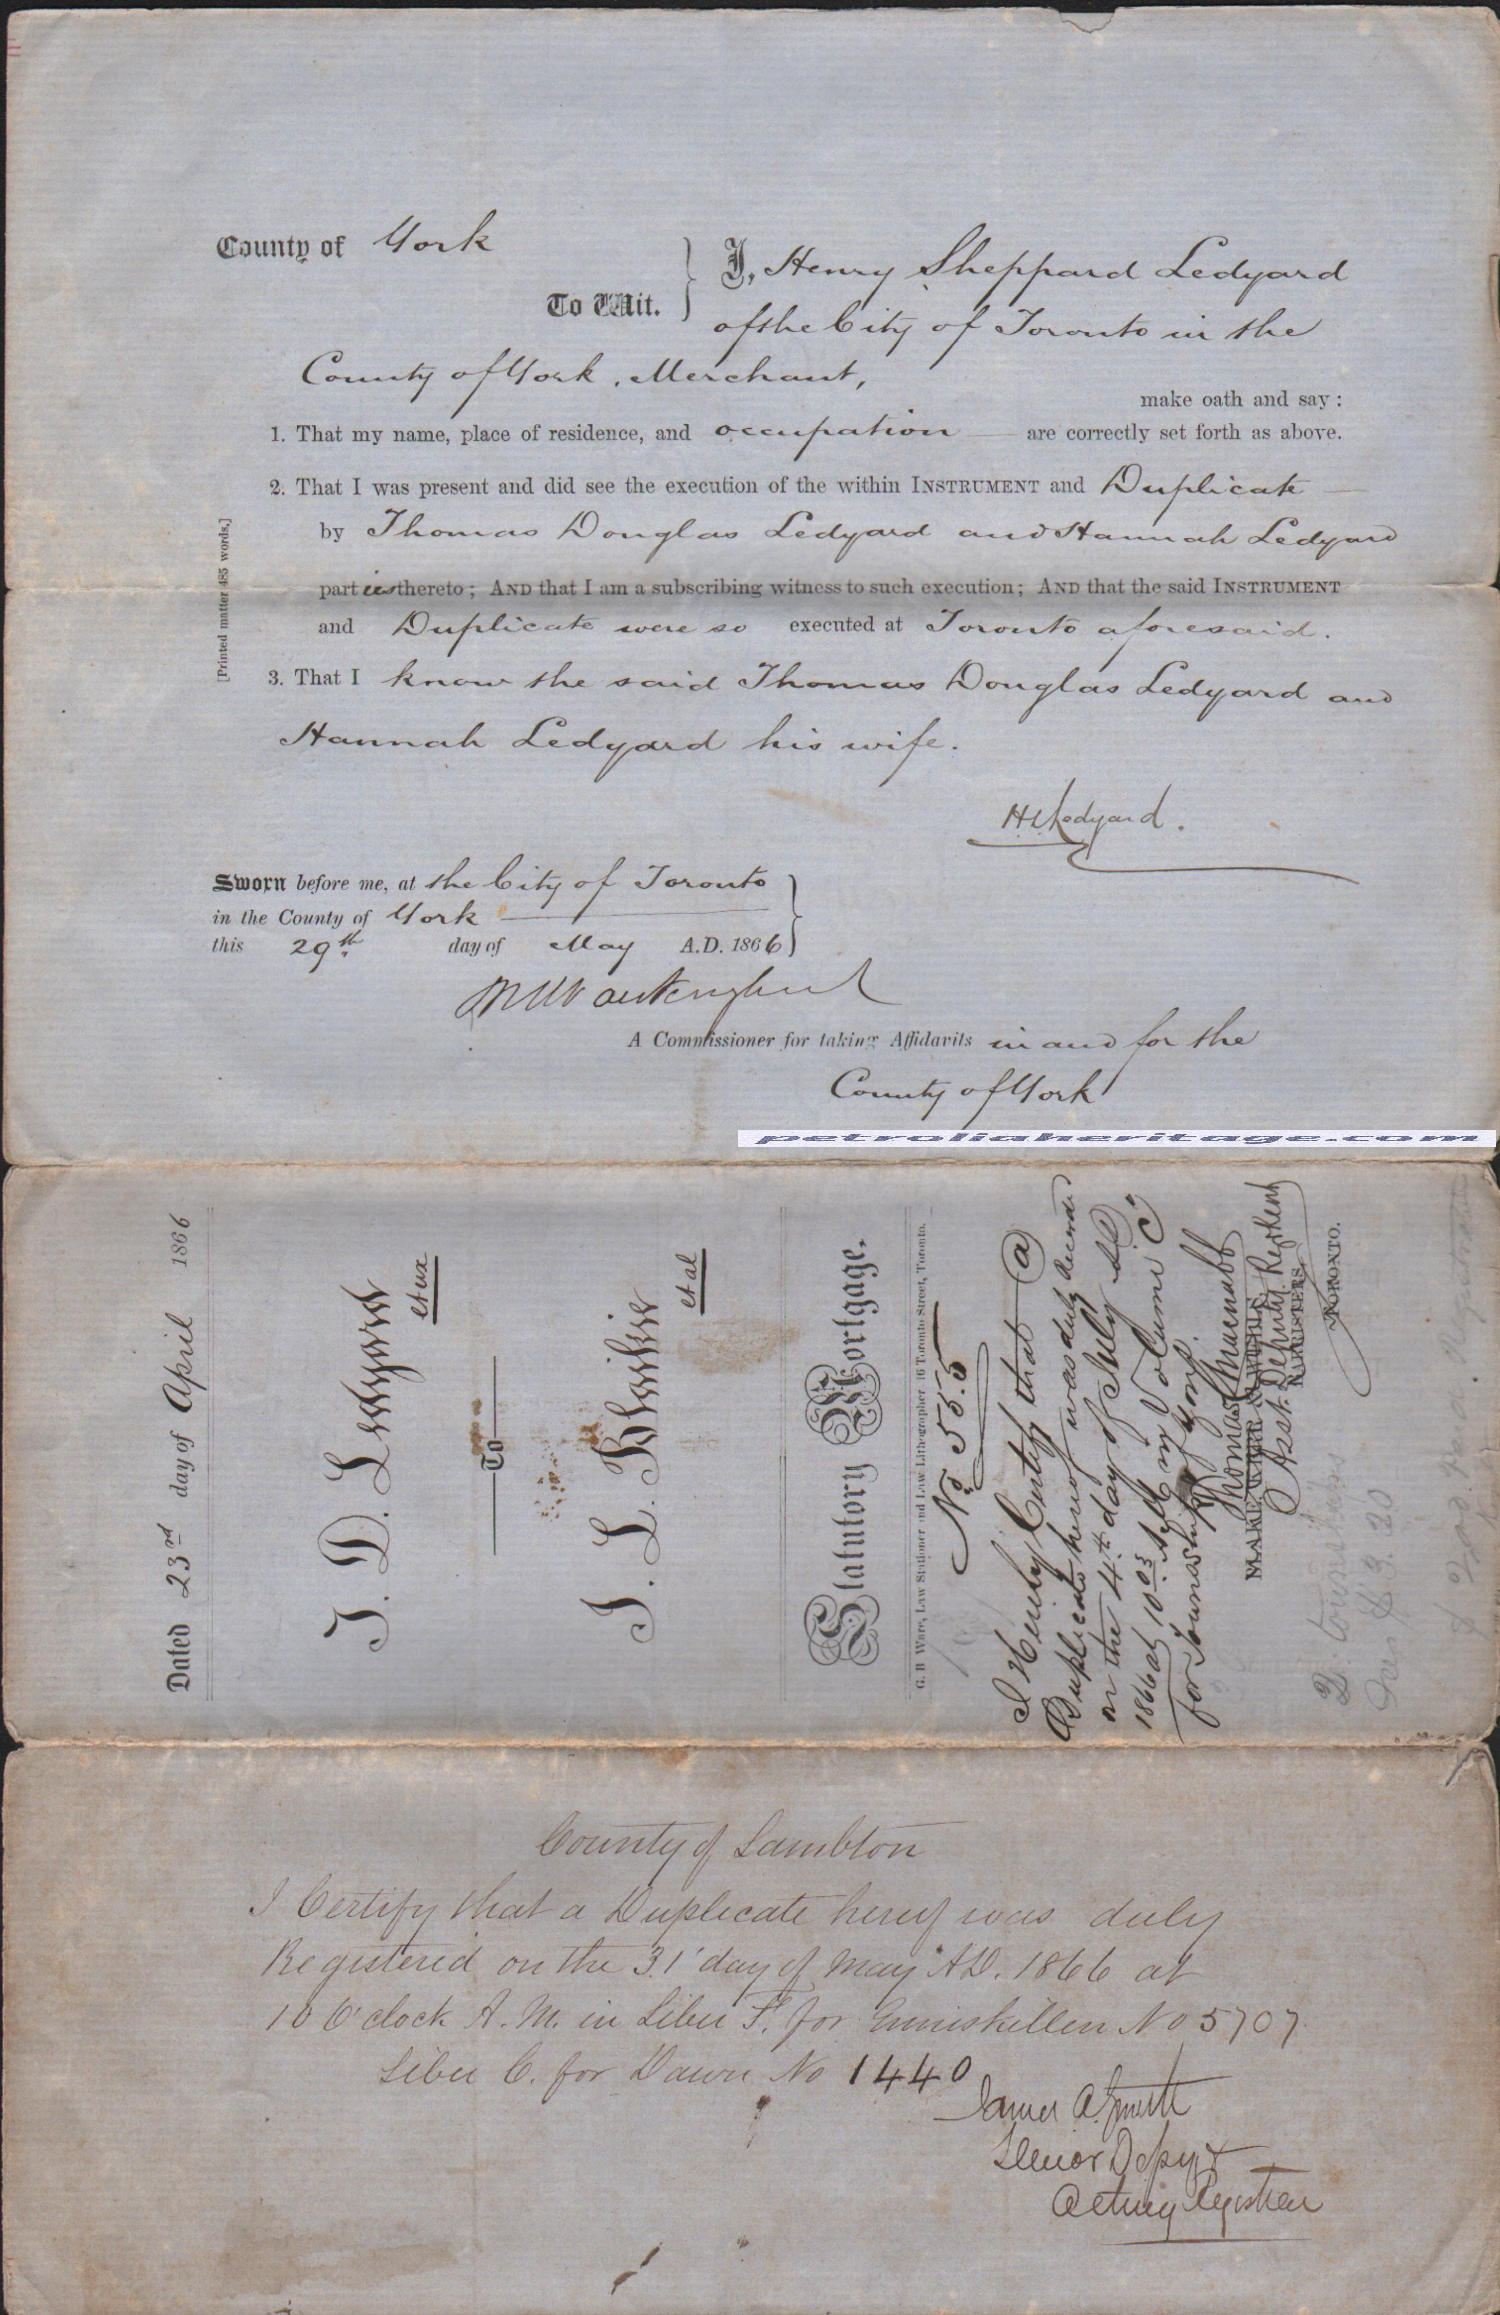 County of York
To Wit.
I, Henry Sheppard Ledyard
of the City of Toronto in the
County of York, Merchant,
make oath and say:
1. That my name, place of residence, and occupation are correctly set forth as above.
2. That I was present and did see the execution of the within INSTRUMENT and Duplicate
by Thomas Douglas Ledyard and Hannah Ledyard
parties thereto; AND that I am a subscribing witness to such execution; AND that the said INSTRUMENT
and Duplicate were so executed at Toronto aforesaid.
3. That I know the said Thomas Douglas Ledyard and
Hannah Ledyard his wife.
[Printed matter 485 words.]
H S Ledyard.
Sworn before me, at the City of Toronto
in the County of York
this 29th day of May A.D. 1866
A Commissioner for taking Affidavits in and for the
County of York
petroliaheritage.com
Dated 23rd day of April 1866
T. D. Ledyard
et ux
To
J. L. Blaikie
et al
Statutory Mortgage.
G. B. Ware, Law Stationer and Law Lithographer 16 Toronto Street, Toronto.
No 555
I Hereby Certify that a
Duplicate hereof was duly Recorded
on the 4th day of July AD
1866 at 10 03 A.M. in Volume C
for Township of York.
Thomas Macnabb
Asst. Deputy Registrar
BARRISTERS
TORONTO.
County of Lambton
I Certify that a Duplicate hereof was duly
Registered on the 31' day of May AD. 1866 at
10 O'clock A.M. in Liber F. for Enniskillen No 5707
Liber C. for Dawn No 1440
James A. Smith
Senior Depy &
Acting Registrar